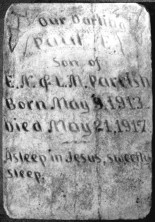 Our Darling
Paul
Son of
E.N. & L.M. Parrish
Born May 9, 1913.
Died May 21, 1917.
Asleep in Jesus, sweetly
sleep.